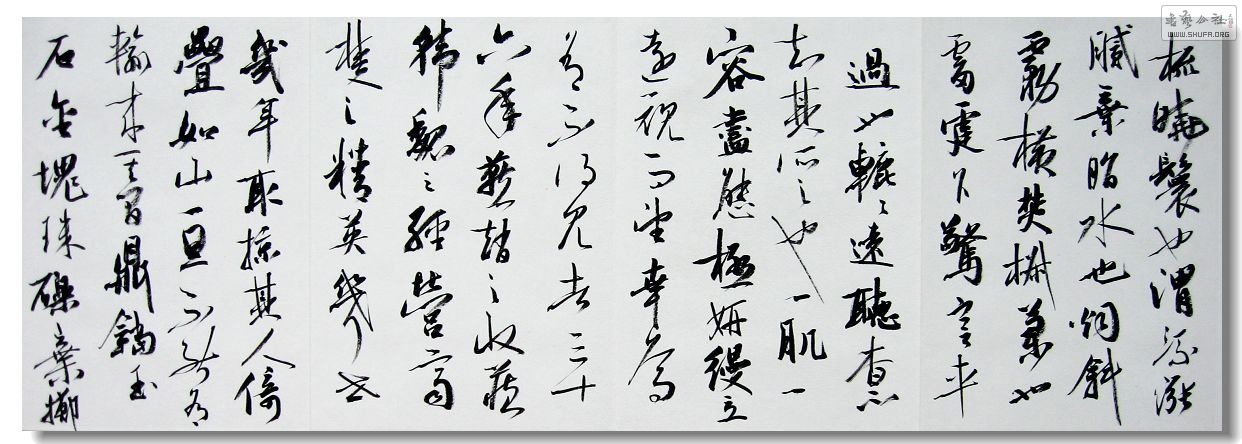 梳曉鬟也渭流漲
膩棄脂水也烟斜
霧橫焚椒蘭也
雷霆乍驚宮車
過也轆轆遠聽杳不
知其所之也一肌一
容盡態極妍縵立
遠視而望幸焉
有不得見者三十
六年燕趙之收藏
韓魏之經營齊
楚之精英幾世
幾年取掠其人倚
疊如山一旦不能有
輸來其間鼎鐺玉
石金塊珠礫棄擲
書藝公社
WWW.SHUFA.ORG